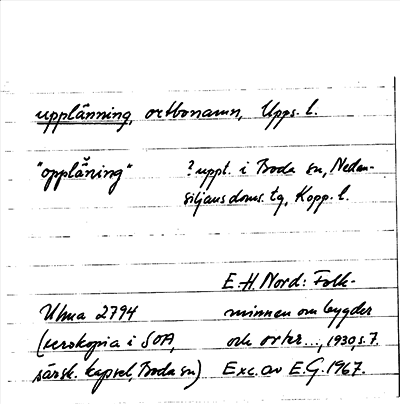 upplänning, ortbonamn, Upps. l.
"oppläning" ? uppt. i Boda sn, Nedan-
siljans doms. tg, Kopp. l.
E.H. Nord: Folk-
Uma 2794 minnen om bygder
(xerokopia i SOA, och orter..., 1930, s. 7.
särsk. kapsel, Boda sn) Exc. av E.G. 1967.